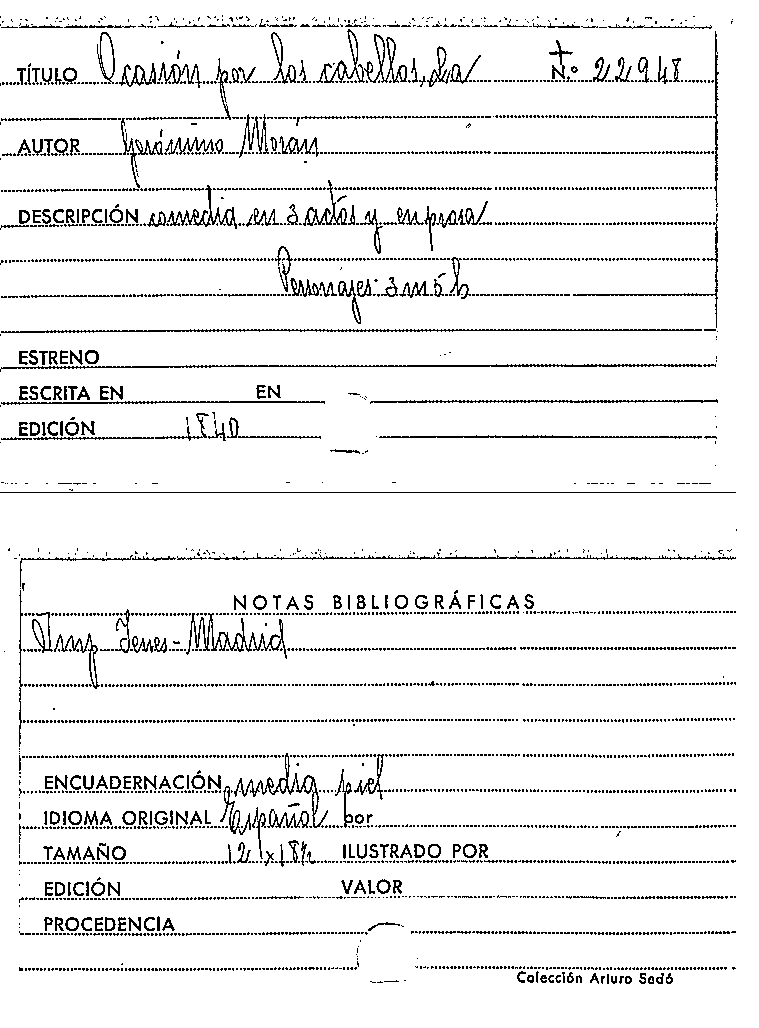 TÍTULO Ocasión por los cabellos, La N.º 22948
AUTOR Gerónimo Morán
DESCRIPCIÓN comedia en 3 actos y en prosa
Personajes: 3 m 5 h
ESTRENO
ESCRITA EN EN
EDICIÓN 1840
NOTAS BIBLIOGRÁFICAS
Imp Yenes - Madrid
ENCUADERNACIÓN media piel
IDIOMA ORIGINAL Español por
TAMAÑO 12 x 18½ ILUSTRADO POR
EDICIÓN VALOR
PROCEDENCIA
Colección Arturo Sedó